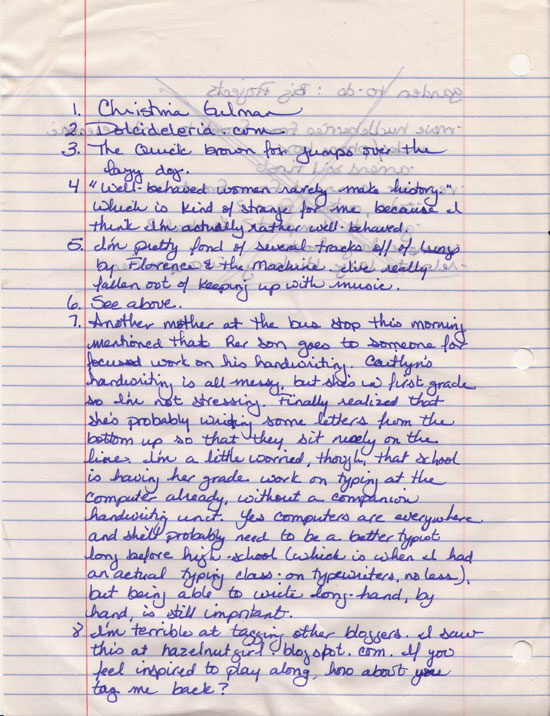 garden to-do: Big Projects
1. Christina Gulman
2. Dolcideleria.com
3. The Quick brown fox jumps over the
lazy dog.
4 "Well-behaved women rarely make history"
which is kind of strange for me, because I
think I'm actually rather well-behaved.
5. I'm pretty fond of several tracks off of Lungs
by Florence & the Machine. I've really
fallen out of keeping up with music.
6. See above.
7. Another mother at the bus stop this morning
mentioned that her son goes to someone for
focused work on his handwriting. Caitlyn's
handwriting is all messy, but she's in first grade
so I'm not stressing. Finally realized that
she's probably writing some letters from the
bottom up so that they sit nicely on the
line. I'm a little worried, though, that school
is having her grade work on typing at the
computer already, without a companion
handwriting unit. Yes computers are everywhere
and she'll probably need to be a better typist
long before high-school (which is when I had
an actual typing class: on typewriters, no less),
but being able to write long-hand, by
hand, is still important.
8. I'm terrible at tagging other bloggers. I saw
this at hazelnutgirl.blogspot.com. If you
feel inspired to play along, how about you
tag me back?